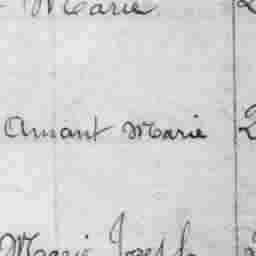 Marie
Amant Marie 2
Marie Joseph